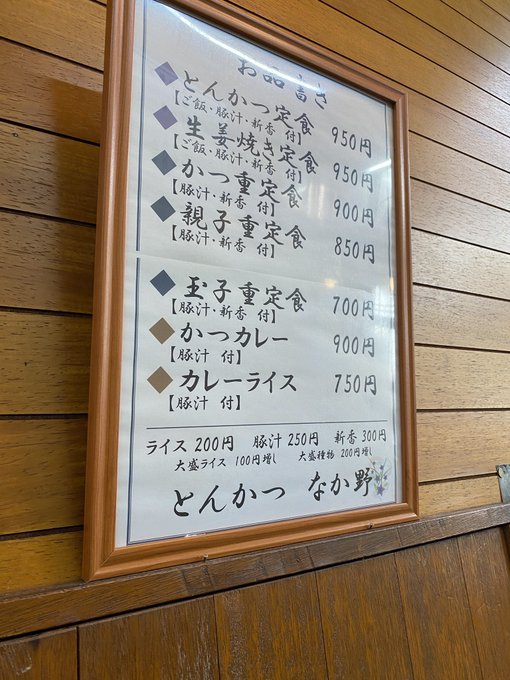 お品書き
とんかつ定食 950円
【ご飯・豚汁・新香 付】
生姜焼き定食 950円
【ご飯・豚汁・新香 付】
かつ重定食 900円
【豚汁・新香 付】
親子重定食 850円
【豚汁・新香 付】
玉子重定食 700円
【豚汁・新香 付】
かつカレー 900円
【豚汁 付】
カレーライス 750円
【豚汁 付】
ライス 200円 豚汁 250円 新香 300円
大盛ライス 100円増し 大盛種物 200円増し
とんかつ なか野